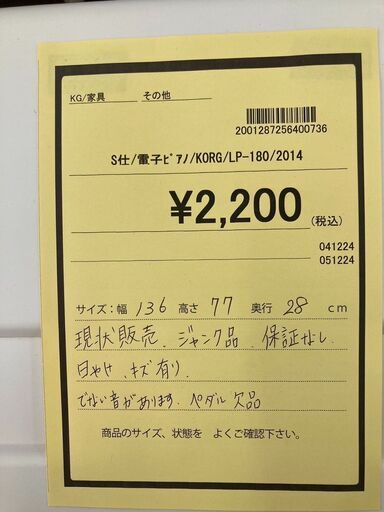 KG/家具 その他
2001287256400736
S仕/電子ﾋﾟｱﾉ/KORG/LP-180/2014
¥2,200 (税込)
041224
051224
サイズ:幅 136 高さ 77 奥行 28 cm
現状販売、ジャンク品、保証なし
日やけ、キズ有り、
でない音があります、ペダル欠品
商品のサイズ、状態を よくご確認下さい。